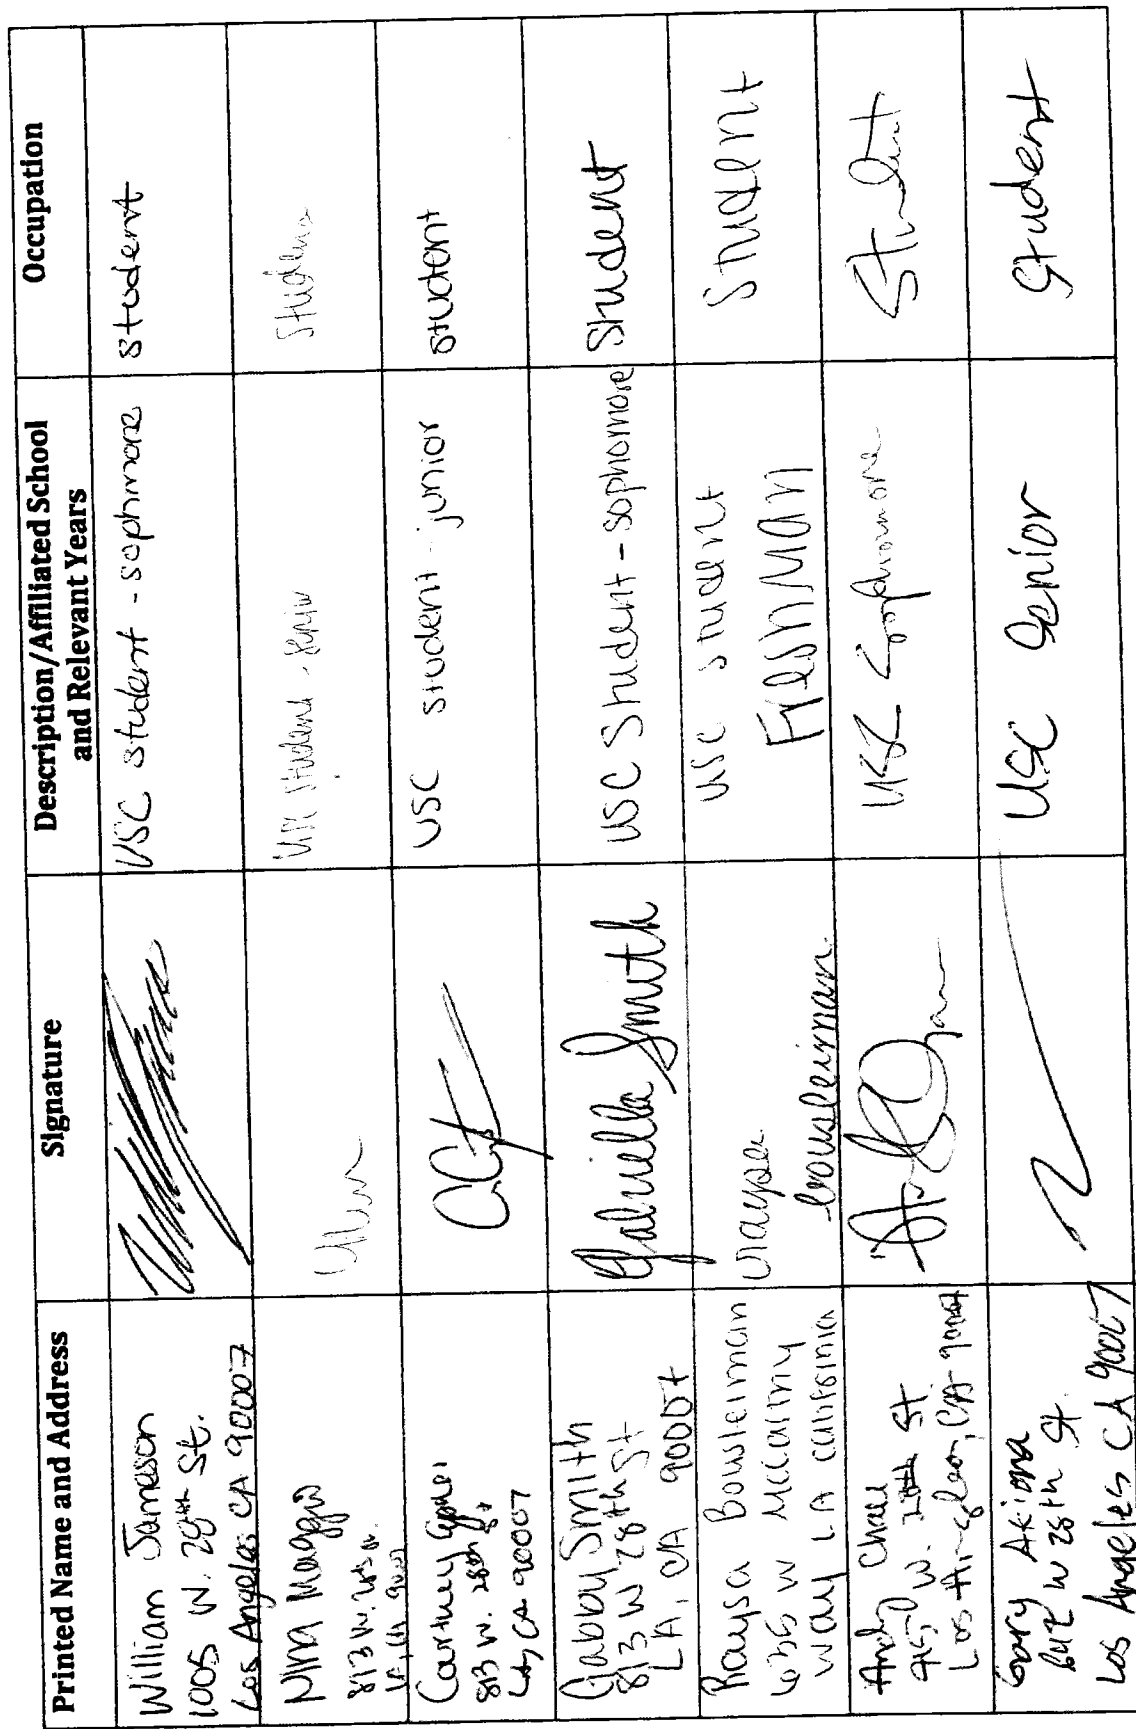 Printed Name and Address
Signature
Description/Affiliated School
and Relevant Years
Occupation
William Jameson
1005 W. 28th St.
Los Angeles CA 90007
USC student - sophmore
student
Nina Maggio
813 W. 28th St.
LA, CA 90007
USC Student - senior
Student
Courtney
813 W. 28th St
LA, CA 90007
USC student - junior
student
Gabby Smith
813 W 28th St
LA, CA 90007
Gabriella Smith
USC Student - sophomore
Student
Raysa Bousleiman
635 W Mccarthy
way LA california
raysa
bousleiman
USC student
Freshman
Student
Andy
W. 28th St
Los Angeles, CA 90007
USC Sophomore
Student
Gary Akiona
W 28th St.
Los Angeles CA 90007
USC Senior
Student